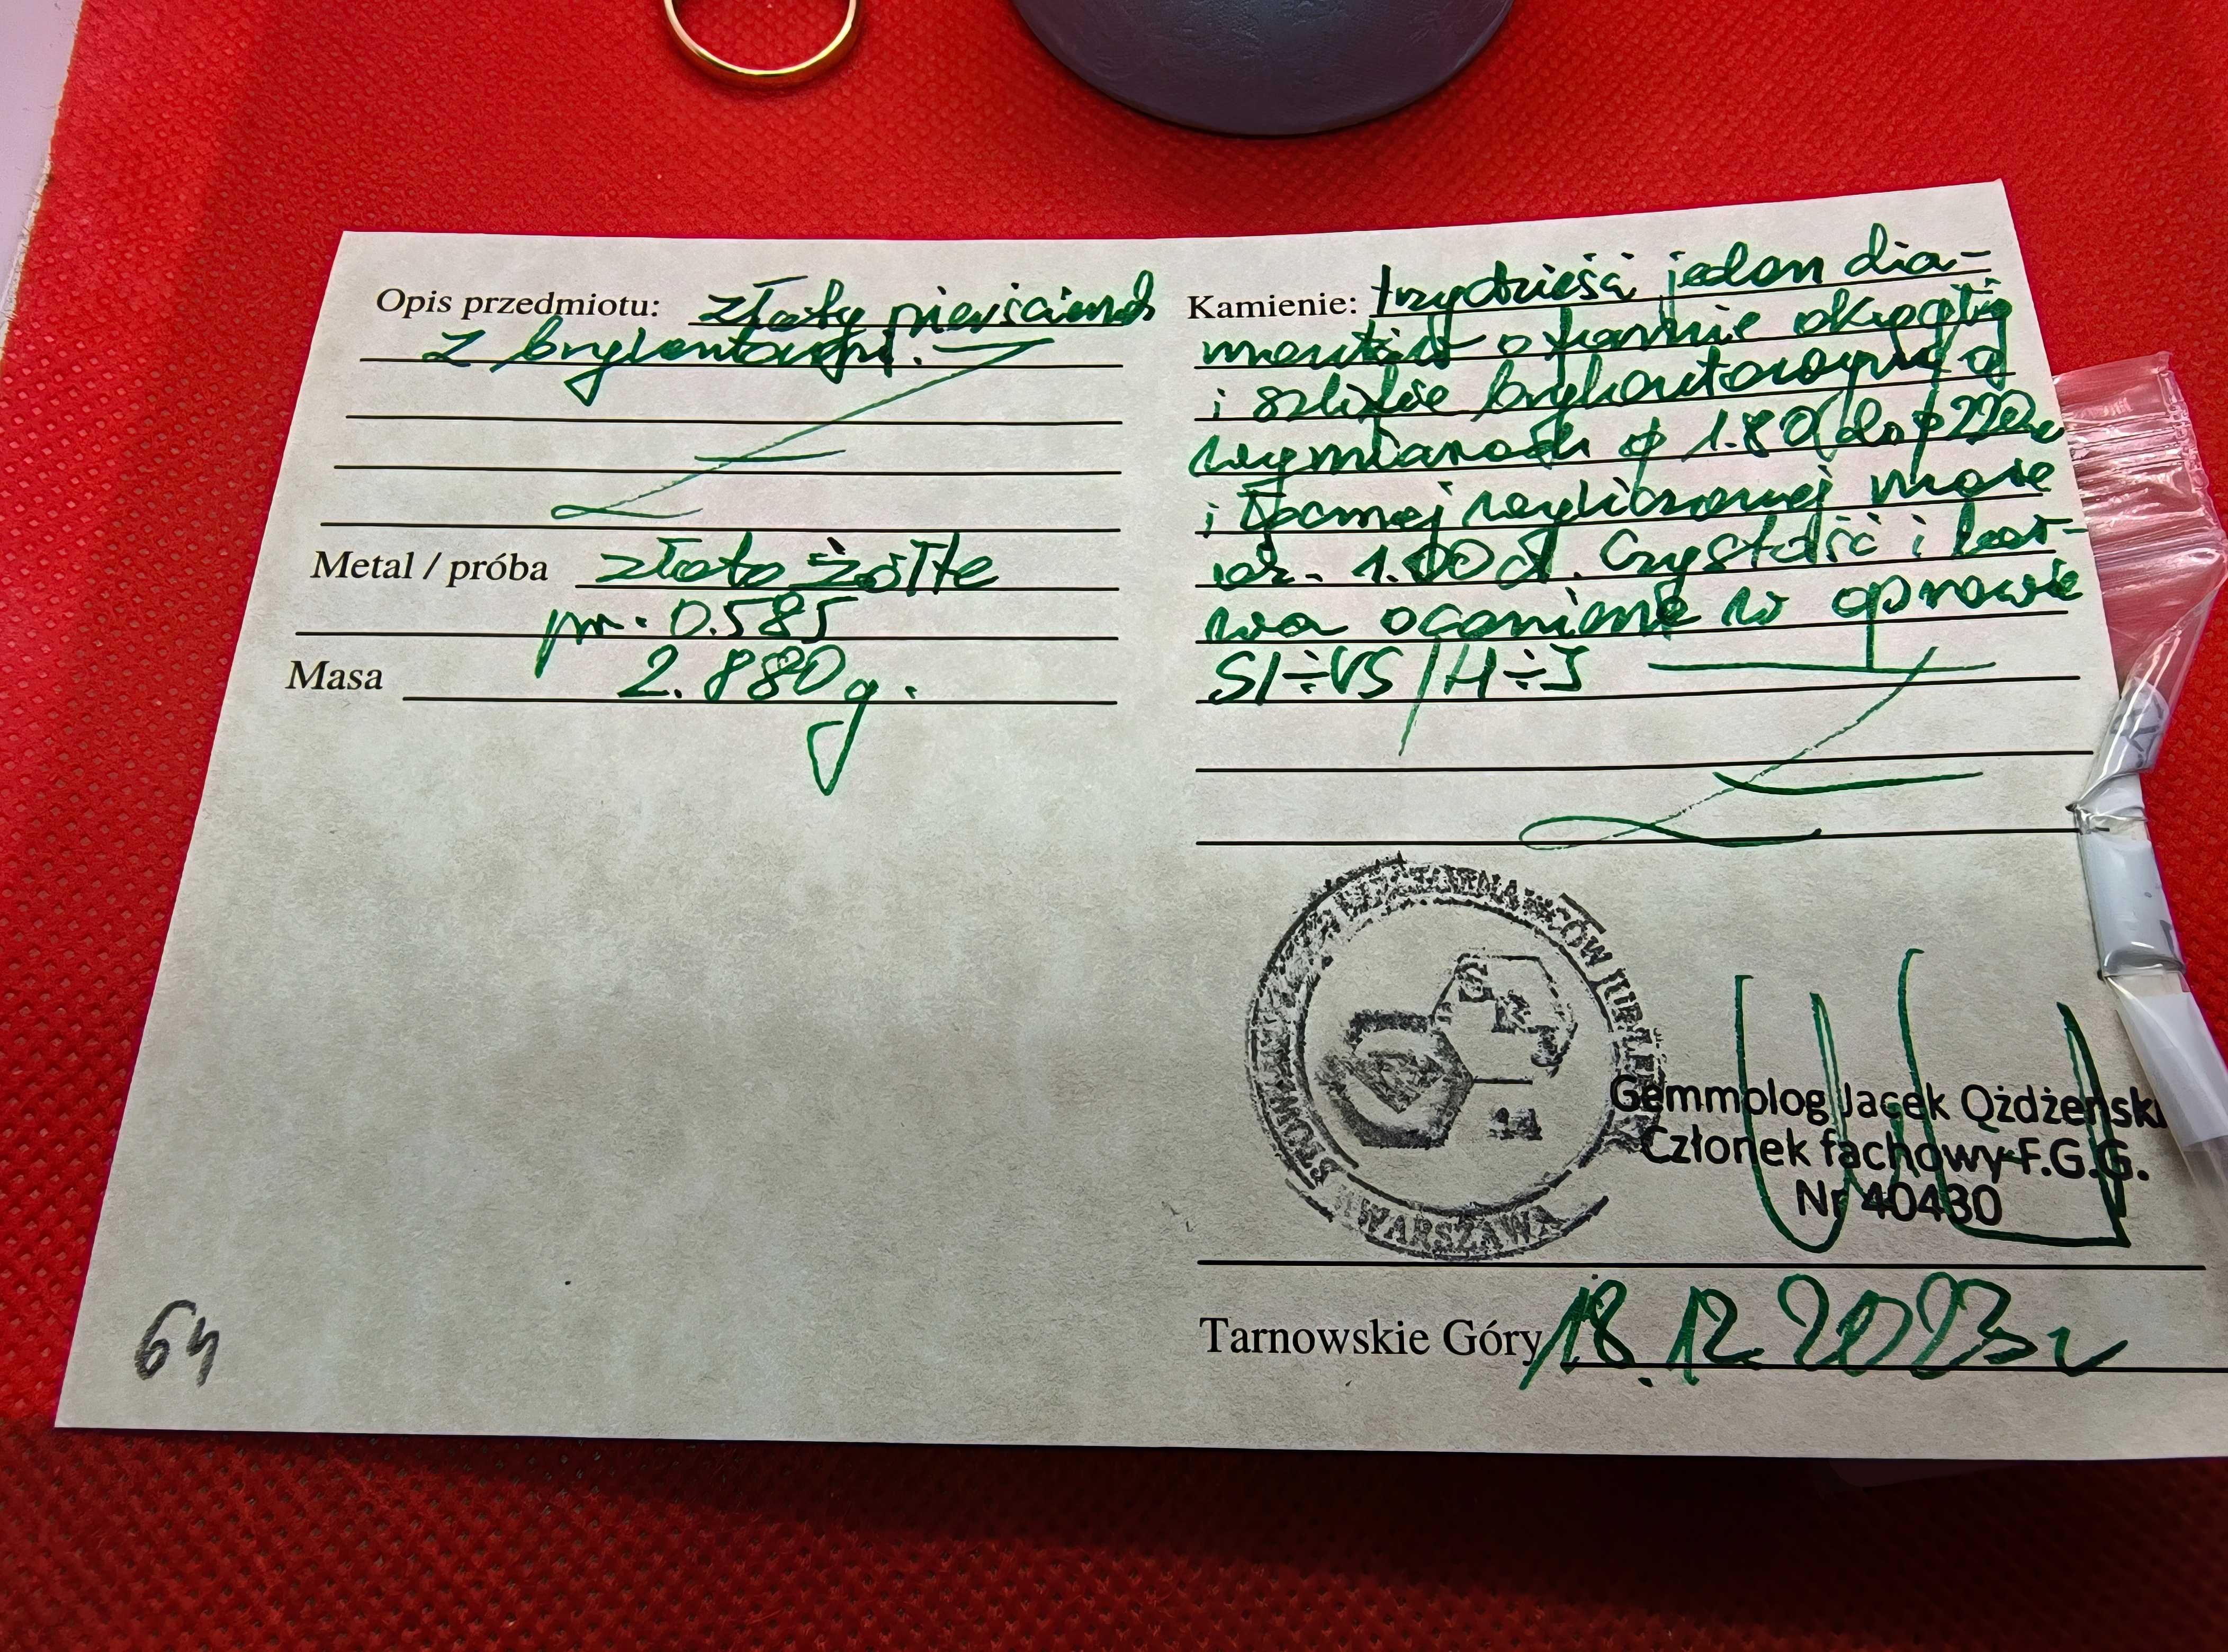 Opis przedmiotu: złoty pierścionek
z brylantami.
Metal / próba złoto żółte
pr. 0.585
Masa 2.880 g.
Kamienie: trzydzieści jeden dia-
mentów o formie okrągłej
i szlifie brylantowym o
wymiarach ϕ 1.80 do ϕ
i łącznej wyliczonej masie
ok. 1.00 ct. Czystość i bar-
wa ocenione w oprawie
SI÷VS / H÷J
RZECZOZNAWCÓW JUBILERSKICH
STOWARZYSZENIE
S.R.J.
WARSZAWA
Gemmolog Jacek Ożdżeński
Członek fachowy F.G.G.
Nr 40430
Tarnowskie Góry 18.12.2023r
64